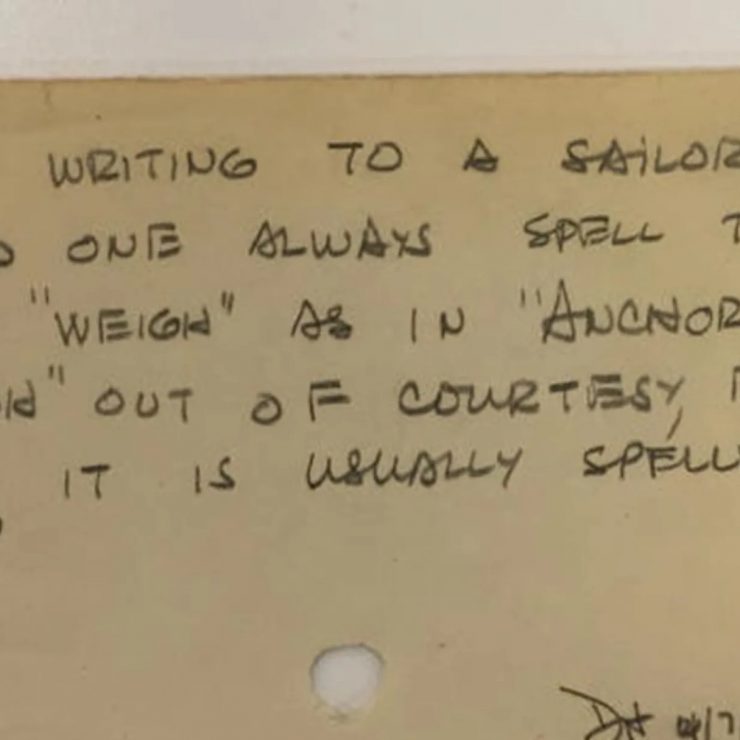 WRITING TO A SAILOR
ONE ALWAYS SPELL
"WEIGH" AS IN "ANCHOR
OUT OF COURTESY,
IT IS USUALLY SPELL